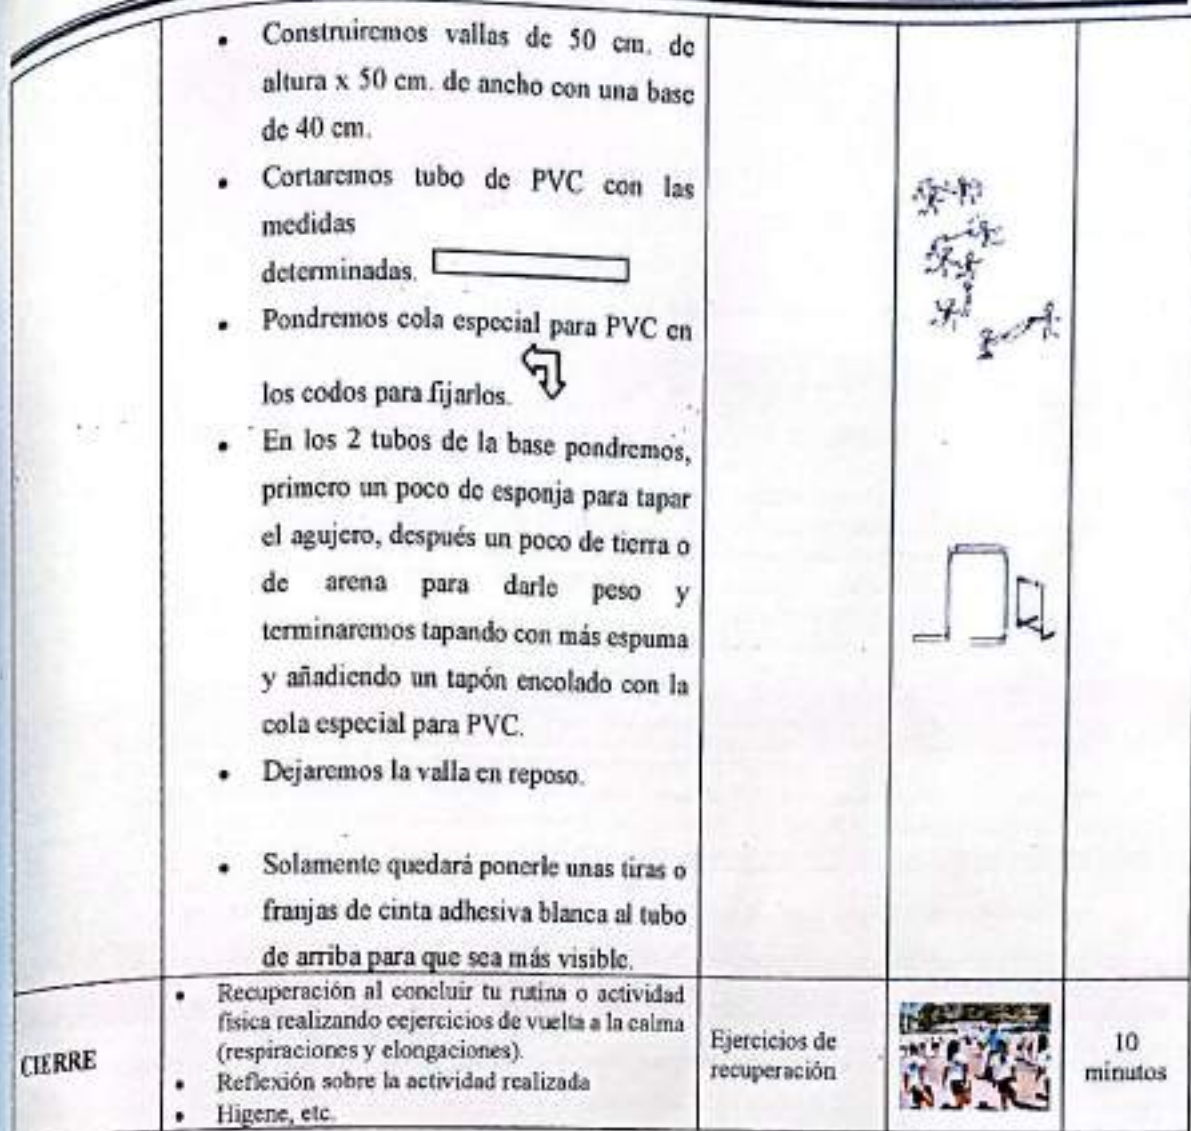 • Construiremos vallas de 50 cm. de
altura x 50 cm. de ancho con una base
de 40 cm.
• Cortaremos tubo de PVC con las
medidas
determinadas.
• Pondremos cola especial para PVC en
los codos para fijarlos.
• En los 2 tubos de la base pondremos,
primero un poco de esponja para tapar
el agujero, después un poco de tierra o
de arena para darle peso y
terminaremos tapando con más espuma
y añadiendo un tapón encolado con la
cola especial para PVC.
• Dejaremos la valla en reposo.
• Solamente quedará ponerle unas tiras o
franjas de cinta adhesiva blanca al tubo
de arriba para que sea más visible.
CIERRE
• Recuperación al concluir tu rutina o actividad
física realizando cejercicios de vuelta a la calma
(respiraciones y elongaciones).
• Reflexión sobre la actividad realizada
• Higene, etc.
Ejercicios de
recuperación
10
minutos